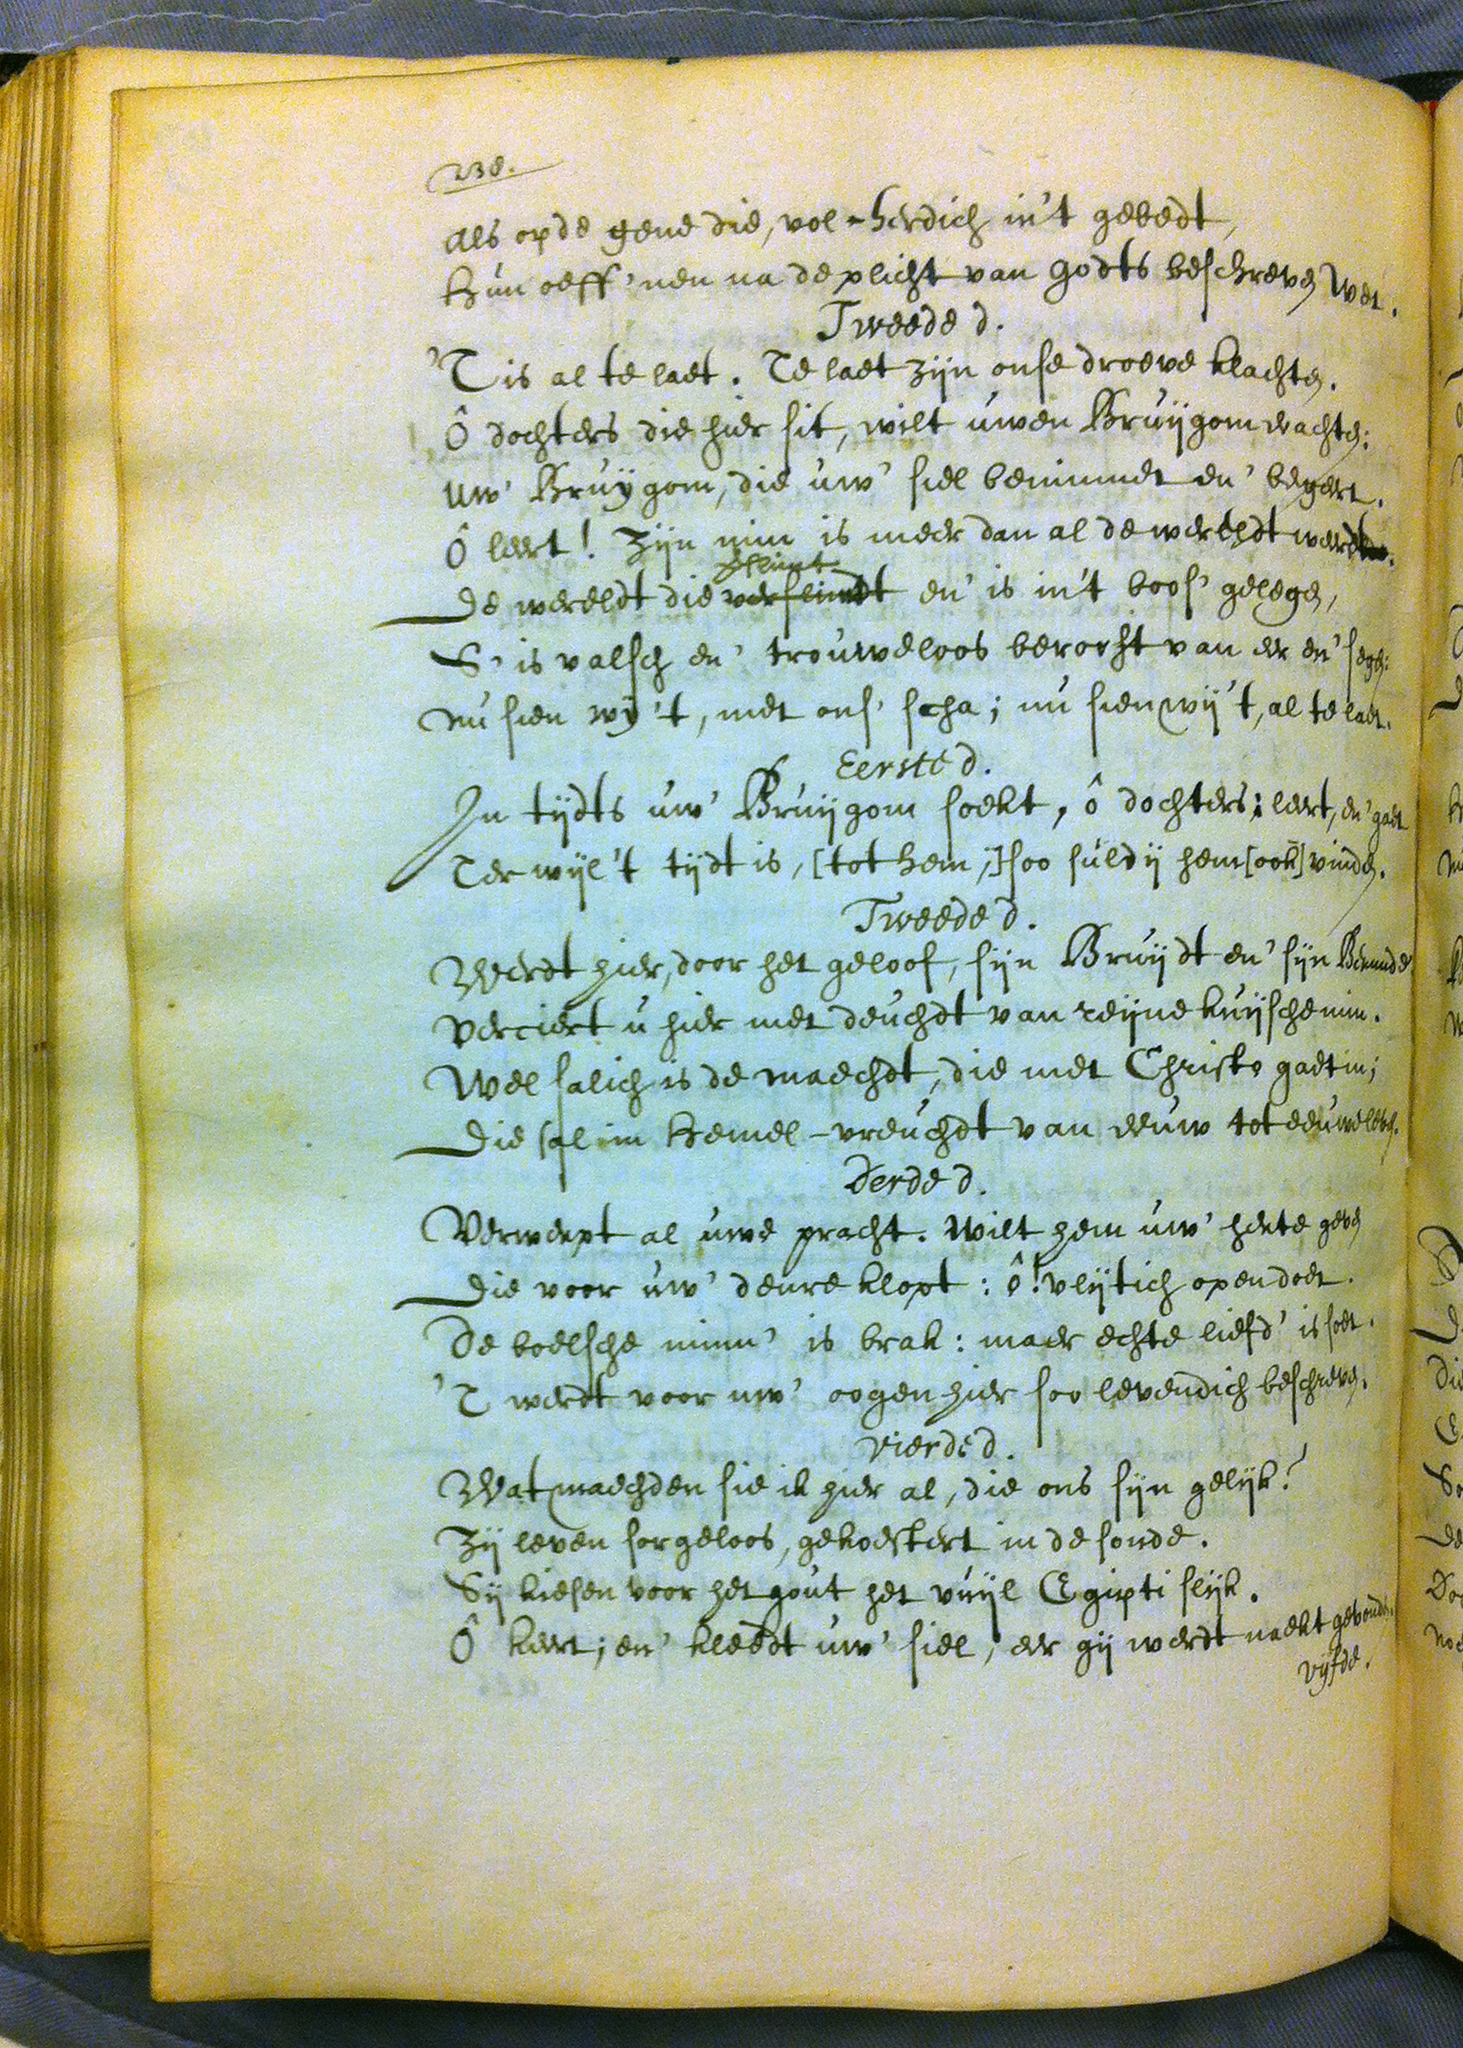 238.
als op de gene die, vol-herdich in't gebedt,
Hun oeff'nen na de plicht van Godts beschreven Wet.
Tweede d.
'T is al te laet. Te laet zijn onse droeve klachten.
Ô dochters die hier sit, wilt uwen Bruijgom wachten:
Uw' Bruijgom, die uw' siel bemimmet en' begeert.
Ô leert! Zijn min is meer dan al de wereldt weerdt.
De wereldt die verslindt en' is in't boos' gelegen,
S' is valsch en' trouweloos berooft van eer en' segen:
Nu sien wij't, met ons' scha; nu sien wij't, al te laet.
Eerste d.
In tijdts uw' Bruijgom soekt, ô dochters; leert, en' gaet
Terwijl 't tijdt is, [tot hem,] soo suldij hem [ook] vinden.
Tweede d.
Werdt hier, door het geloof, sijn Bruijdt en' sijn Beminde
Verciert u hier met deuchdt van reijne kuijsche min.
Wel salich is de maechdt, die met Christo gaet in;
Die sal in Hemel-vreuchdt van eeuw tot eeuw leven.
Derde d.
Verwerpt al uwe pracht. Wilt hem uw' herte geven
Die voor uw' deure klopt: ô! vlijtich open doet.
De boelsche minn' is brak: maer echte liefd' is soet.
'T werdt voor uw' oogen hier soo levendich beschreven.
Vierde d.
Wat maechden sie ik hier al, die ons sijn gelijk?
Zij leven sorgeloos, gekoestert in de sonde.
Sij kiesen voor het gout het vuijl Egipti slijk.
Ô keert; en' kleedt uw' siel, eer gij werdt naekt gevonden.
Vijfde.